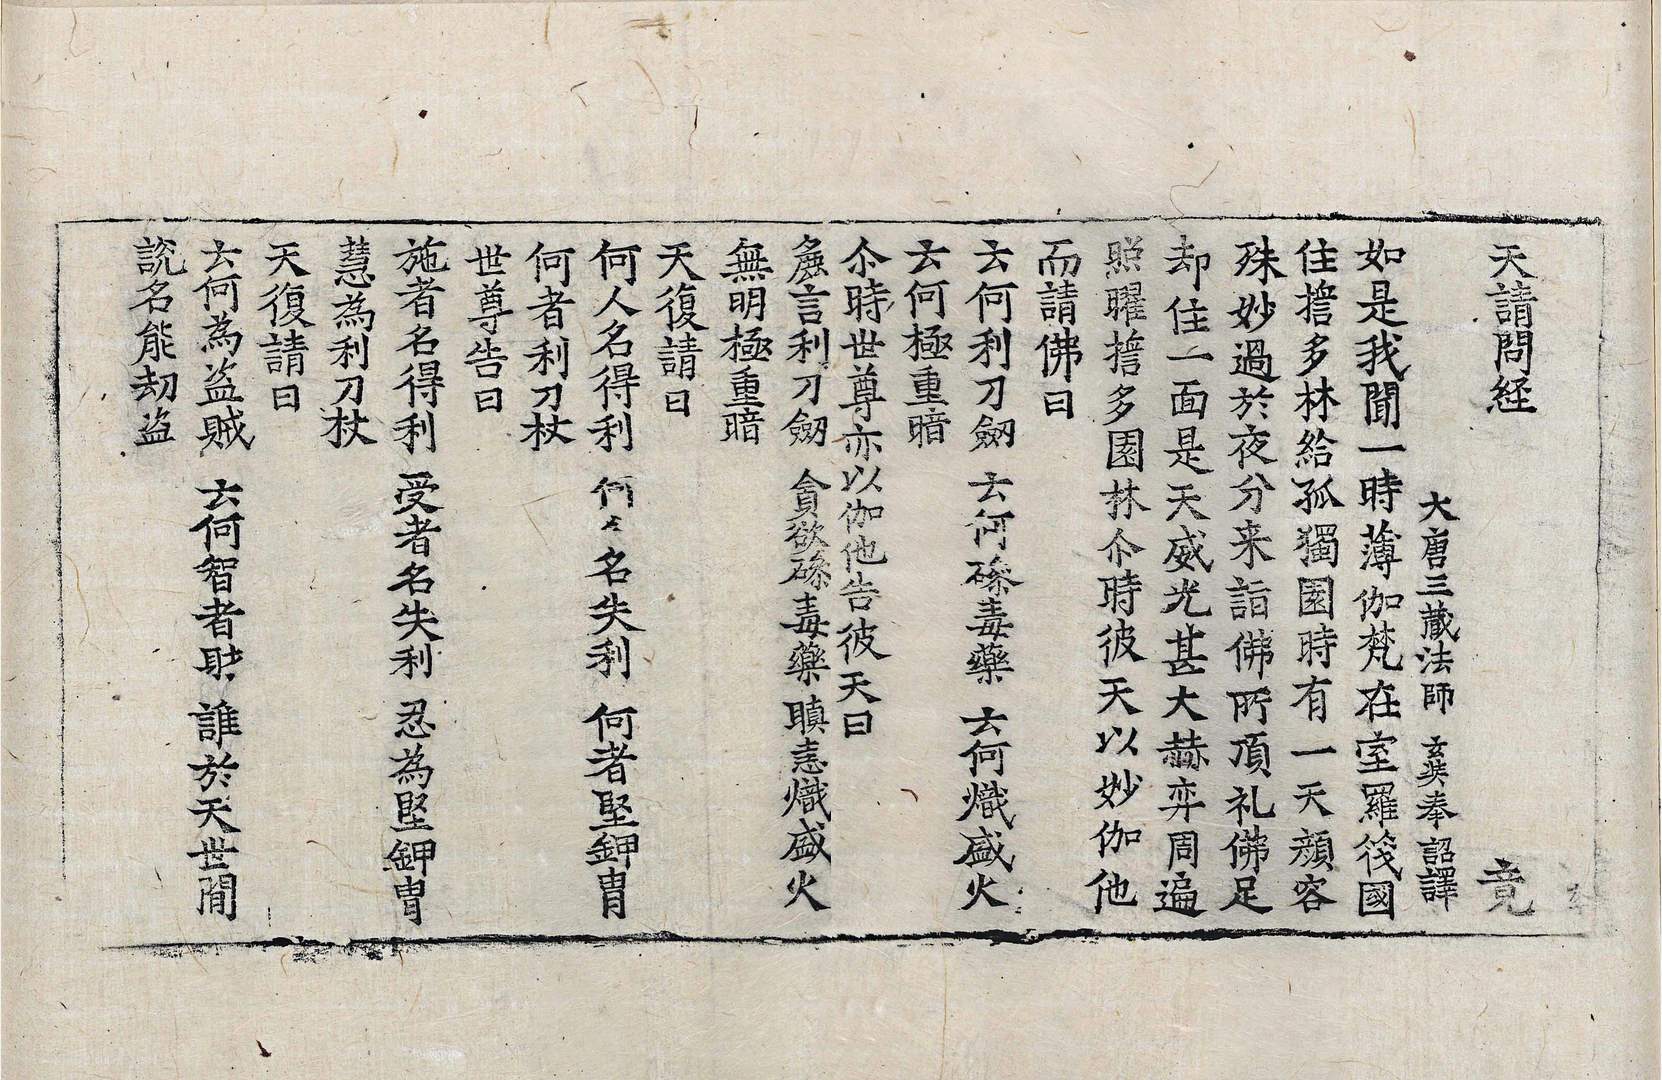 天請問経 竟
大唐三蔵法師 玄奘奉 詔譯
如是我聞一時薄伽梵在室羅筏國
住誓多林給孤獨園時有一天顔容
殊妙過於夜分来詣佛所頂礼佛足
却住一面是天威光甚大赫弈周遍
照曜誓多園林尒時彼天以妙伽他
而請佛曰
云何利刀劔 云何磣毒藥 云何熾盛火
云何極重暗
尒時世尊亦以伽他告彼天曰
麁言利刀劔 貪欲磣毒藥 瞋恚熾盛火
無明極重暗
天復請曰
何人名得利 何 名失利 何者堅鉀冑
何者利刀杖
世尊告曰
施者名得利 受者名失利 忍為堅鉀冑
慧為利刀杖
天復請曰
云何為盗賊 云何智者財 誰於天世間
説名能劫盗